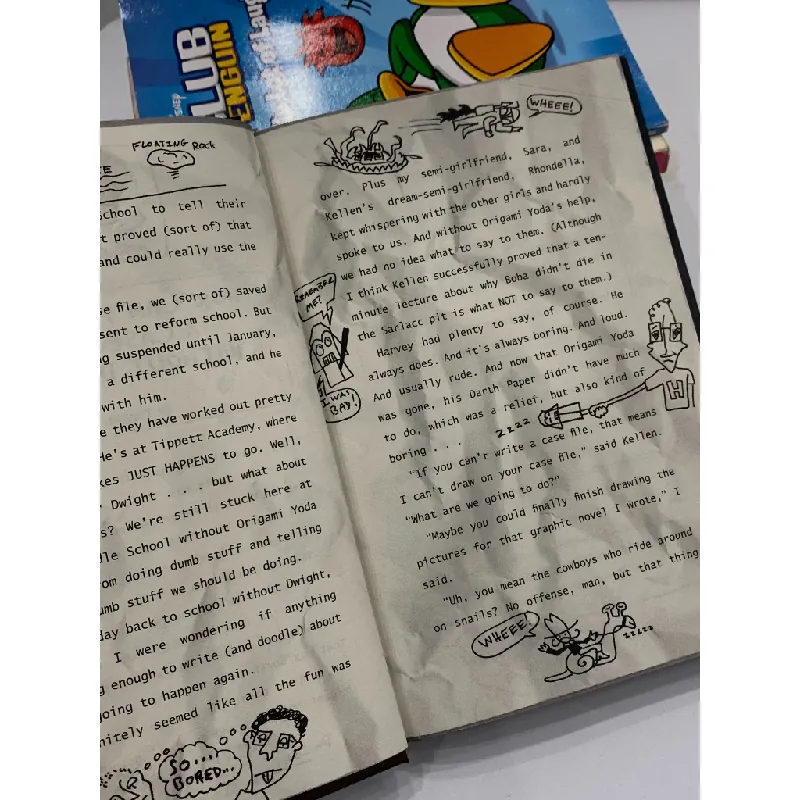 CLUB
PENGUIN
FLOATING Rock
school to tell their
proved (sort of) that
and could really use the
se file, we (sort of) saved
sent to reform school. But
g suspended until January,
a different school, and he
with him.
e they have worked out pretty
He's at Tippett Academy, where
kes JUST HAPPENS to go. Well,
Dwight . . . but what about
s? We're still stuck here at
dle School without Origami Yoda
om doing dumb stuff and telling
umb stuff we should be doing.
day back to school without Dwight,
I were wondering if anything
g enough to write (and doodle) about
going to happen again.
nitely seemed like all the fun was
SO...
BORED...
WHEEE!
over. Plus my semi-girlfriend, Sara, and
Kellen's dream-semi-girlfriend, Rhondella,
kept whispering with the other girls and hardly
spoke to us. And without Origami Yoda's help,
we had no idea what to say to them. (Although
I think Kellen successfully proved that a ten-
minute lecture about why Boba didn't die in
the Sarlacc pit is what NOT to say to them.)
REMEMBER
ME?
I WAS
BAD!
Harvey had plenty to say, of course. He
always does. And it's always boring. And loud.
And usually rude. And now that Origami Yoda
was gone, his Darth Paper didn't have much
to do, which was a relief, but also kind of
boring . . .
zzzz
H
"If you can't write a case file, that means
I can't draw on your case file," said Kellen.
"What are we going to do?"
"Maybe you could finally finish drawing the
pictures for that graphic novel I wrote," I
said.
"Uh, you mean the cowboys who ride around
on snails? No offense, man, but that thing
WHEEE!
zzzzz